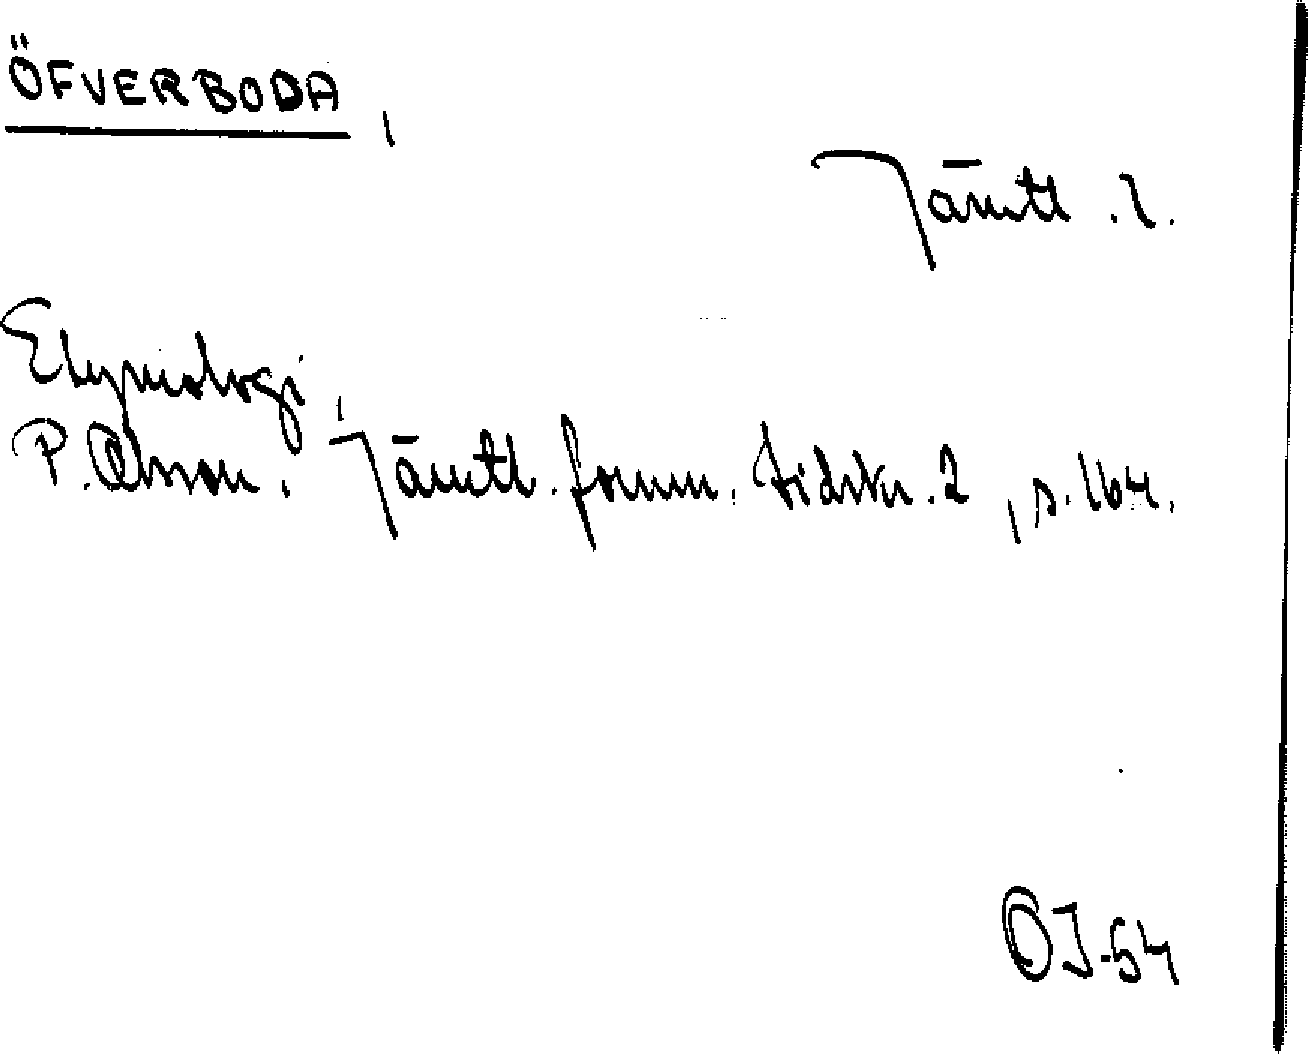 ÖFVERBODA,
Jämtl. l.
Etymologi,
P. Olsson. Jämtl. fornm. tidskr. 2, s. 164.
OJ-54